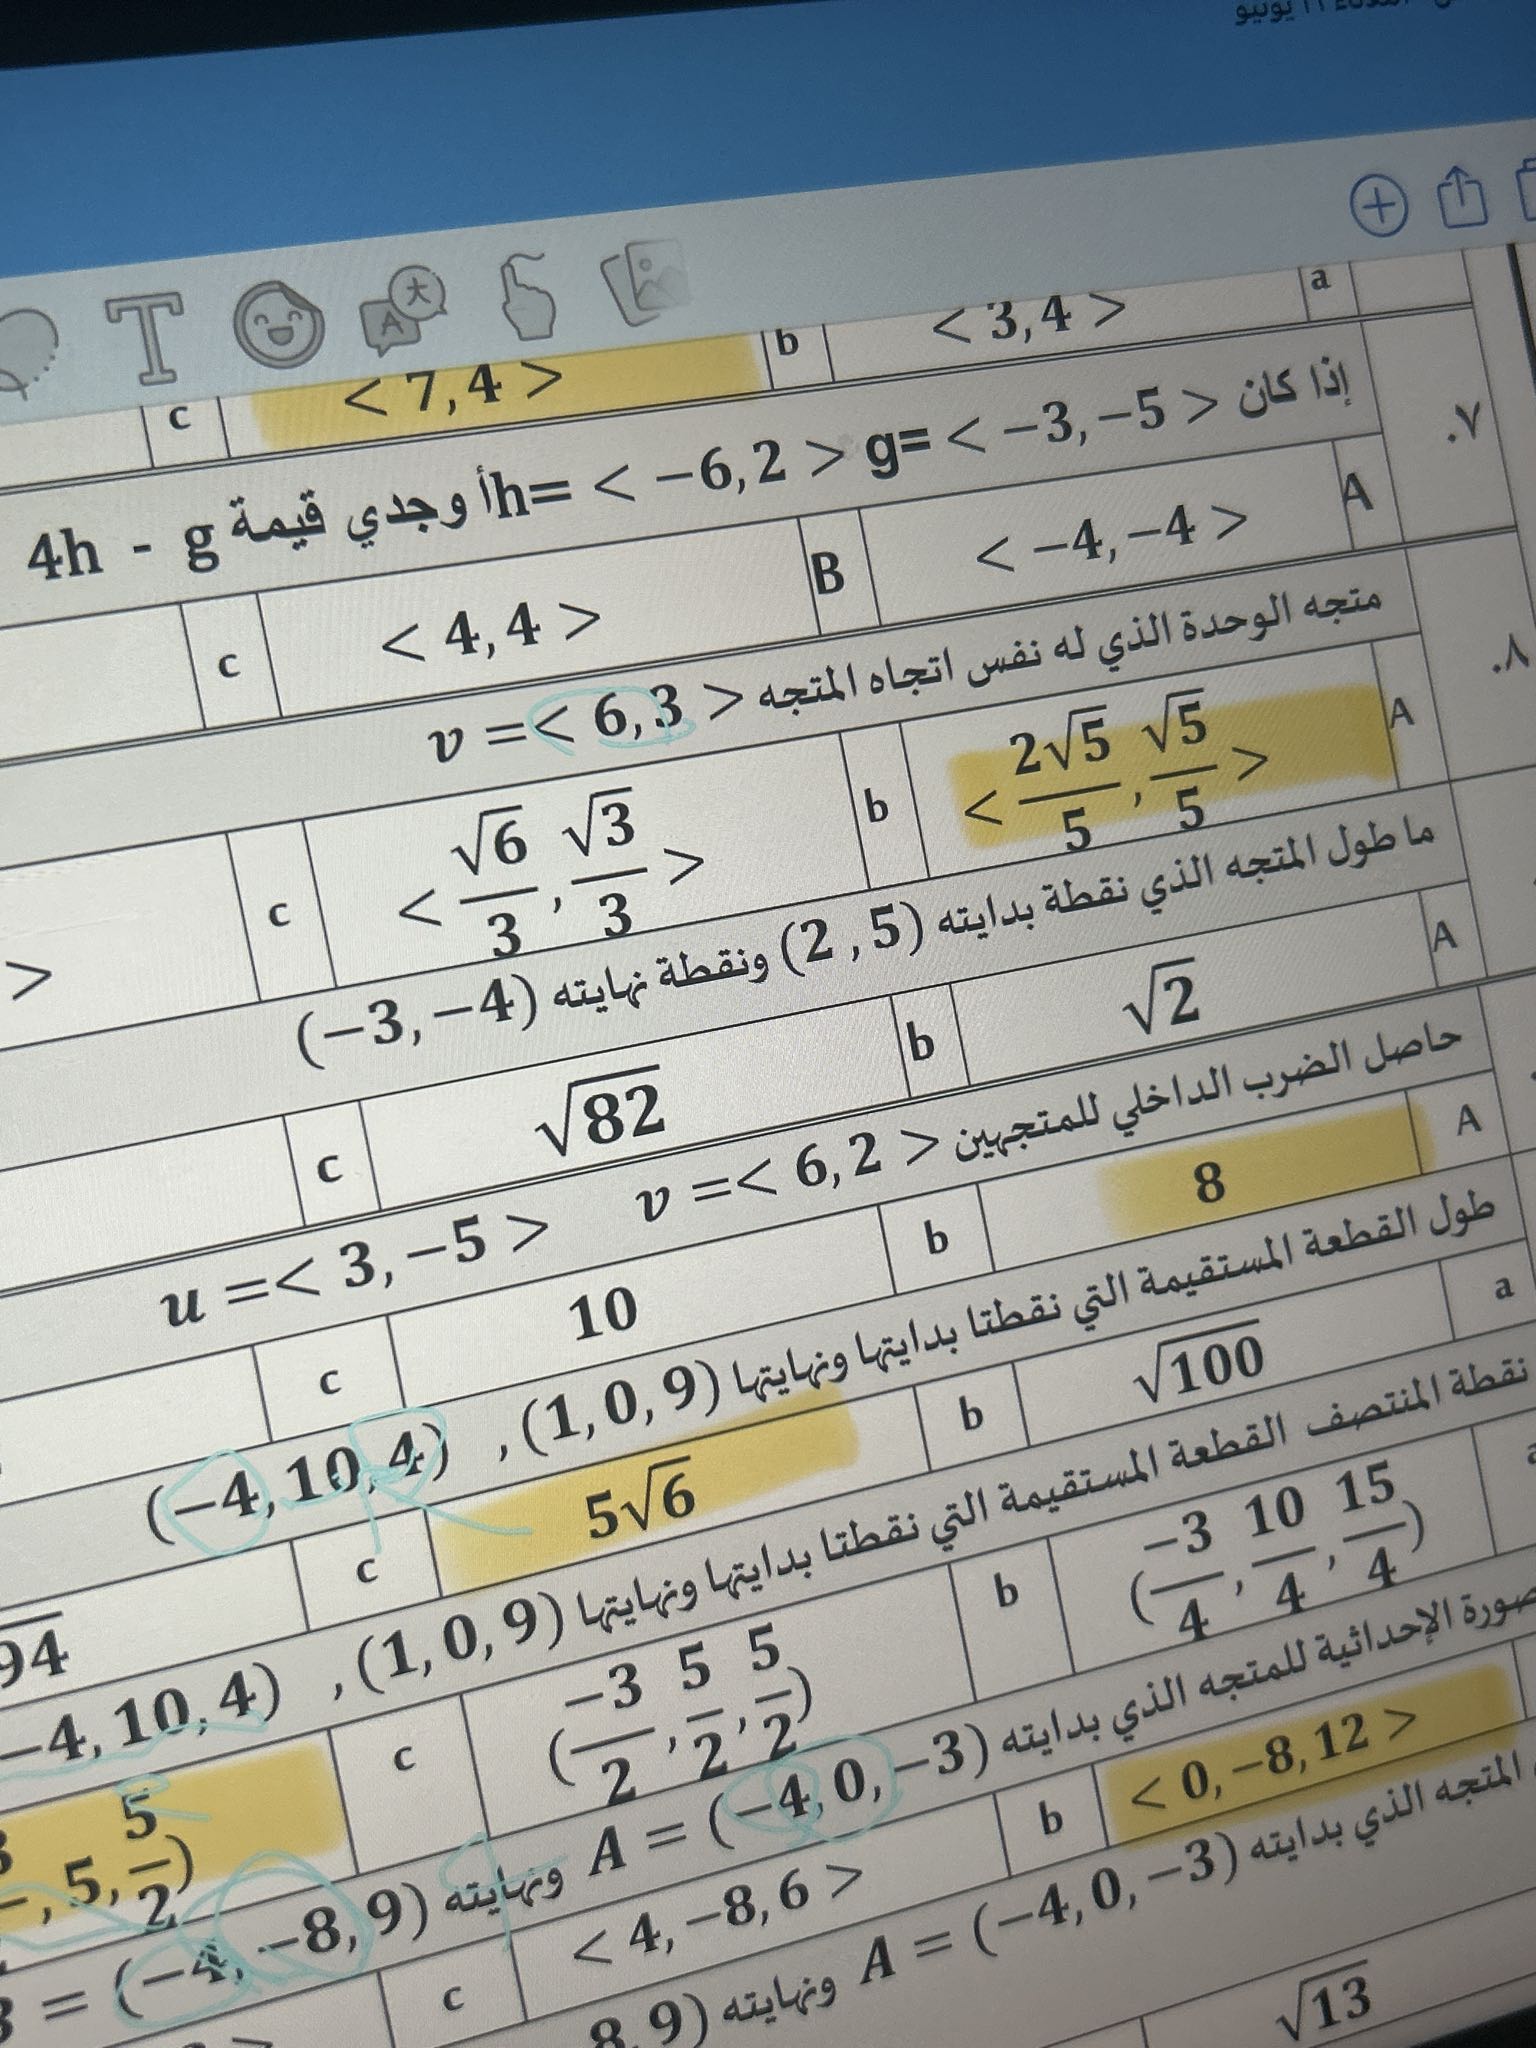 يونيو
a < 3,4 > b < 7,4 > c
٧. إذا كان g= < −3,−5 > h= < −6,2 > أوجدي قيمة 4h - g
A < −4,−4 > B < 4,4 > c
٨. متجه الوحدة الذي له نفس اتجاه المتجه v =< 6,3 >
A < 2√5/5 , √5/5 > b < √6/3 , √3/3 > c >
ما طول المتجه الذي نقطة بدايته (2 ,5) ونقطة نهايته (−3,−4)
A √2 b √82 c
حاصل الضرب الداخلي للمتجهين v =< 6,2 > u =< 3,−5 >
A 8 b 10 c
طول القطعة المستقيمة التي نقطتا بدايتها ونهايتها (1,0,9) , (−4,10,4)
a √100 b 5√6 c 94
نقطة المنتصف القطعة المستقيمة التي نقطتا بدايتها ونهايتها (1,0,9) , −4,10,4)
a (−3/4 , 10/4 , 15/4) b (−3/2 , 5/2 , 5/2) c , 5, 5/2)
الإحداثية للمتجه الذي بدايته A = (−4,0,−3) ونهايته = (−4,−8,9)
< 0,−8,12 > b < 4,−8,6 > c
المتجه الذي بدايته A = (−4,0,−3) ونهايته 8,9)
√13